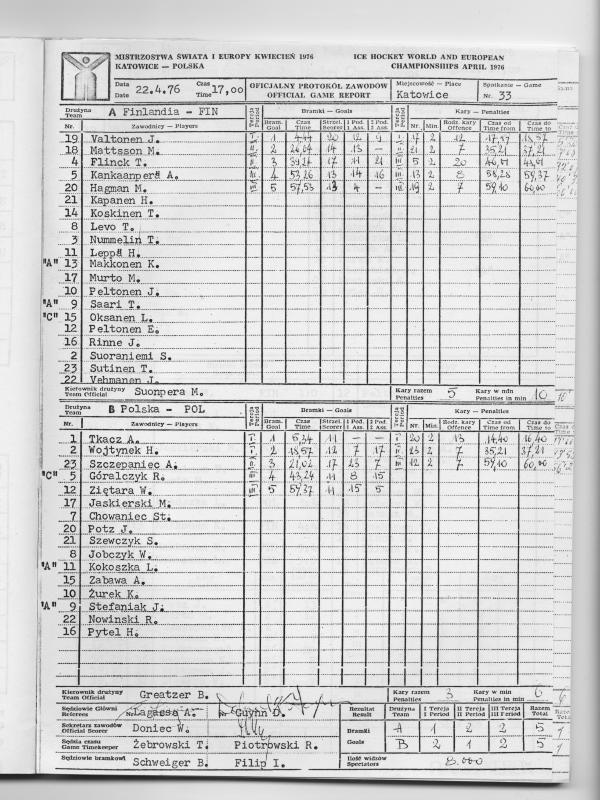 MISTRZOSTWA ŚWIATA I EUROPY KWIECIEŃ 1976 ICE HOCKEY WORLD AND EUROPEAN
KATOWICE — POLSKA CHAMPIONSHIPS APRIL 1976
Data Czas OFICJALNY PROTOKÓŁ ZAWODÓW Miejscowość — Place Spotkanie — Game
Date 22.4.76 Time 17,00 OFFICIAL GAME REPORT Katowice Nr. 33
Drużyna Team A Finlandia - FIN Tercja Period Bramki — Goals Tercja Period Kary — Penalties
Nr. Zawodnicy — Players Bram. Goal Czas Time Strzel. Scorer 1 Pod. 1 Ass. 2 Pod. 2 Ass. Nr. Min. Rodz. kary Offence Czas od Time from Czas do Time to
19 Valtonen J. I. 1 20 12 9 I. 17 2 12 17,57
18 Mattsson M. 2 14 13 — 21 2 7 35,21 37,21
4 Flinck T. 3 17 11 21 5 2 20
5 Kankaanperä A. 4 53,26 13 14 16 13 2 8 58,28 59,37
20 Hagman M. 5 57,53 13 4 — 19 2 7 59,10 60,00
21 Kapanen H.
14 Koskinen T.
8 Levo T.
3 Nummelin T.
11 Leppä H.
"A" 13 Makkonen K.
17 Murto M.
10 Peltonen J.
"A" 9 Saari T.
"C" 15 Oksanen L.
12 Peltonen E.
16 Rinne J.
2 Suoraniemi S.
23 Sutinen T.
22 Vehmanen J.
Kierownik drużyny Team Official Suonpera M. Kary razem Penalties 5 Kary w min Penalties in min 10
Drużyna Team B Polska - POL Tercja Period Bramki — Goals Tercja Period Kary — Penalties
Nr. Zawodnicy — Players Bram. Goal Czas Time Strzel. Scorer 1 Pod. 1 Ass. 2 Pod. 2 Ass. Nr. Min. Rodz. kary Offence Czas od Time from Czas do Time to
1 Tkacz A. I. 1 5,34 11 — — I. 20 2 13 14,40 16,40
2 Wojtynek H. 2 18,57 12 7 17 23 2 7 35,21 37,21
23 Szczepaniec A. 3 21,02 17 23 7 12 2 7 59,10 60,00
"C" 5 Góralczyk R. 4 43,24 11 8 15
12 Ziętara W. 5 59,37 11 15 5
17 Jaskierski M.
7 Chowaniec St.
20 Potz J.
21 Szewczyk S.
8 Jobczyk W.
"A" 11 Kokoszka L.
15 Zabawa A.
10 Żurek K.
"A" 9 Stefaniak J.
22 Nowinski R.
16 Pytel H.
Kierownik drużyny Team Official Greatzer B. Kary razem Penalties 3 Kary w min Penalties in min 6
Sędziowie Główni Referees Lagasse A. Guynn D. Rezultat Result Drużyna Team I Tercja I Period II Tercja II Period III Tercja III Period Razem Total
Sekretarz zawodów Official Scorer Doniec W. Bramki A 1 2 2 5
Sędzia czasu Game Timekeeper Żebrowski T. Piotrowski R. Goals B 2 1 2 5
Sędziowie bramkowi Schweiger B. Filip I. Ilość widzów Spectators 8.000